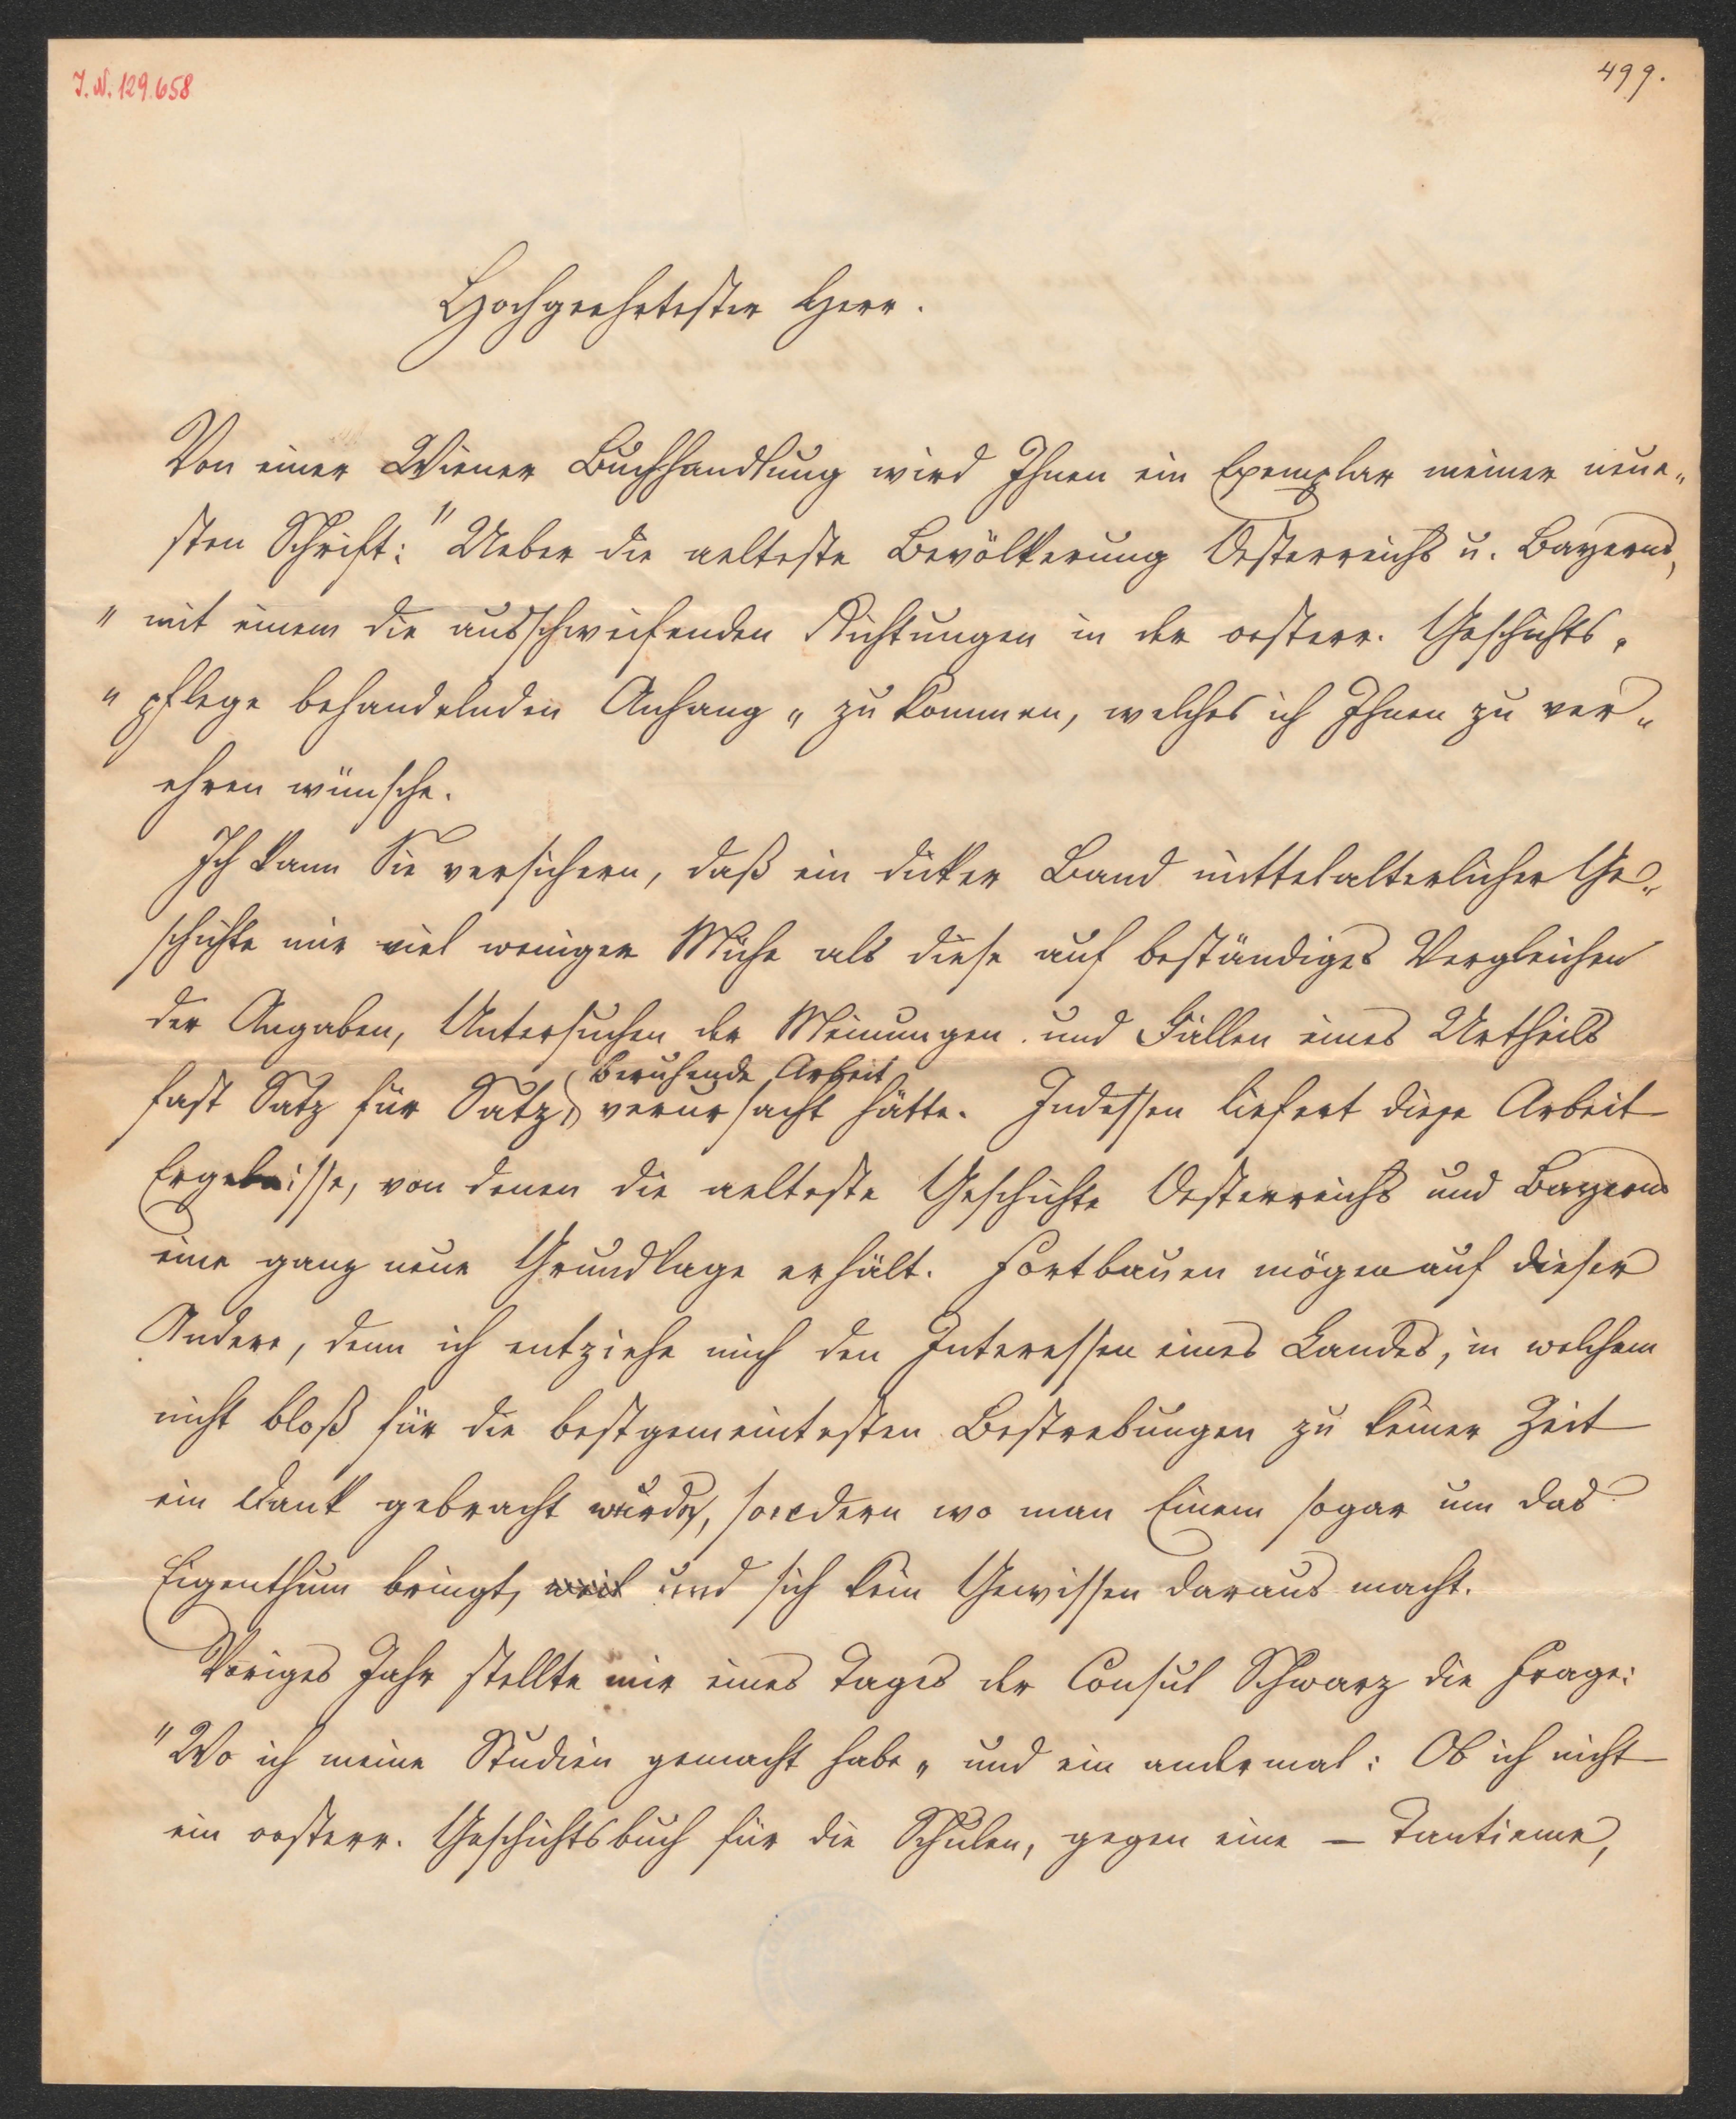 I. N. 129.658
499.
Hochgeehrtester Herr.
Von einer Wiener Buchhandlung wird Ihnen ein Exemplar meiner neue„
sten Schrift: "Ueber die aelteste Bevölkerung Oesterreichs u. Bayerns,
" mit einem die ausschweifenden Richtungen in der oesterr. Geschichts„
" pflege behandelnden Anhang „ zu kommen, welches ich Ihnen zu ver„
ehren wünsche.
Ich kann Sie versichern, daß ein dicker Band mittelalterlicher Ge„
schichte mir viel weniger Mühe als diese auf beständiges Vergleichen
der Angaben, Untersuchen der Meinungen und Fällen eines Urtheils
beruhende Arbeit
fast Satz für Satz, verursacht hätte. Indessen liefert diese Arbeit
Ergebnisse, von denen die aelteste Geschichte Oesterreichs und Bayerns
eine ganz neue Grundlage erhält. Fortbauen mögen auf dieser
Andere, denn ich entziehe mich den Interessen eines Landes, in welchem
nicht bloß für die bestgemeintesten Bestrebungen zu keiner Zeit
ein Dank gebracht wurde, sondern wo man Einem sogar um das
Eigenthum bringt, weil und sich kein Gewissen daraus macht.
Voriges Jahr stellte mir eines Tages der Consul Schwarz die Frage:
"Wo ich meine Studien gemacht habe „ und ein andermal: Ob ich nicht
ein oesterr. Geschichtsbuch für die Schulen, gegen eine – Tantieme,